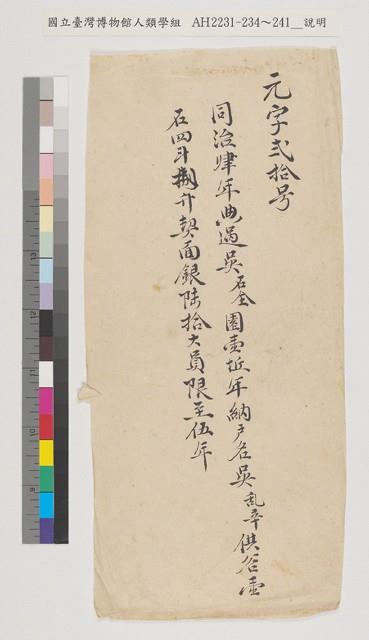 國立臺灣博物館人類學組 AH2231-234～241__說明
元字弍拾号
同治肆年典過吳石全園壹坵年納戶名吳乱辛供谷壹
石四斗捌升契面銀陸拾大員限至伍年